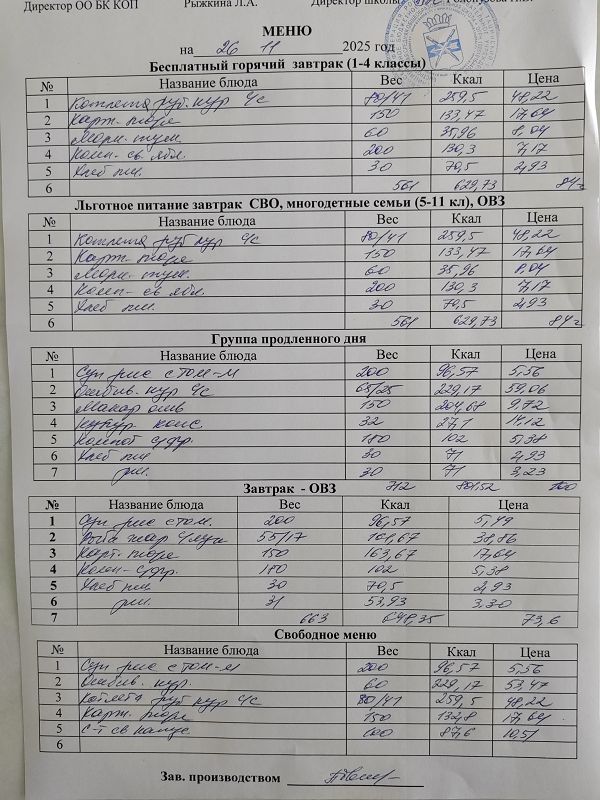 Директор ОО БК КОП Рыжкина Л.А. Директор школы
МЕНЮ
на 26 11 2025 год
Бесплатный горячий завтрак (1-4 классы)
№ Название блюда Вес Ккал Цена
1 Котлета руб. кур ч/с 80/41 259,5 48,22
2 Карт. пюре 150 133,47 17,64
3 Морк. туш. 60 35,96 8,04
4 Комп. св ябл. 200 130,3 7,17
5 Хлеб пш. 30 70,5 2,93
6 561 629,73 84
Льготное питание завтрак СВО, многодетные семьи (5-11 кл), ОВЗ
№ Название блюда Вес Ккал Цена
1 Котлета руб кур ч/с 80/41 259,5 48,22
2 Карт. пюре 150 133,47 17,64
3 Морк. туш. 60 35,96 8,04
4 Комп- св ябл. 200 130,3 7,17
5 Хлеб пш. 30 70,5 2,93
6 561 629,73 84
Группа продленного дня
№ Название блюда Вес Ккал Цена
1 Суп рис с том-м 200 96,57 5,56
2 кур ч/с 65/25 229,17 59,06
3 Макар отв 150 204,68 9,72
4 Кукур конс. 32 27,1 14,12
5 Компот с/фр. 180 102 5,38
6 Хлеб пш 30 71 2,93
7 рж. 30 71 3,23
Завтрак - ОВЗ 712 801,52 100
№ Название блюда Вес Ккал Цена
1 Суп рис с том. 200 96,57 5,49
2 Рыба 55/17 38,86
3 Карт. пюре 150 163,67 17,64
4 Комп- с/фр. 180 102 5,38
5 Хлеб пш 30 70,5 2,93
6 рж. 31 53,93 3,30
7 663 648,35 73,6
Свободное меню
№ Название блюда Вес Ккал Цена
1 Суп рис с том-м 200 96,57 5,56
2 кур. 60 229,17 53,47
3 Котлета руб кур ч/с 80/41 259,5 48,22
4 Карт. пюре 150 17,64
5 С-т св капус 600 87,6 10,51
6
Зав. производством